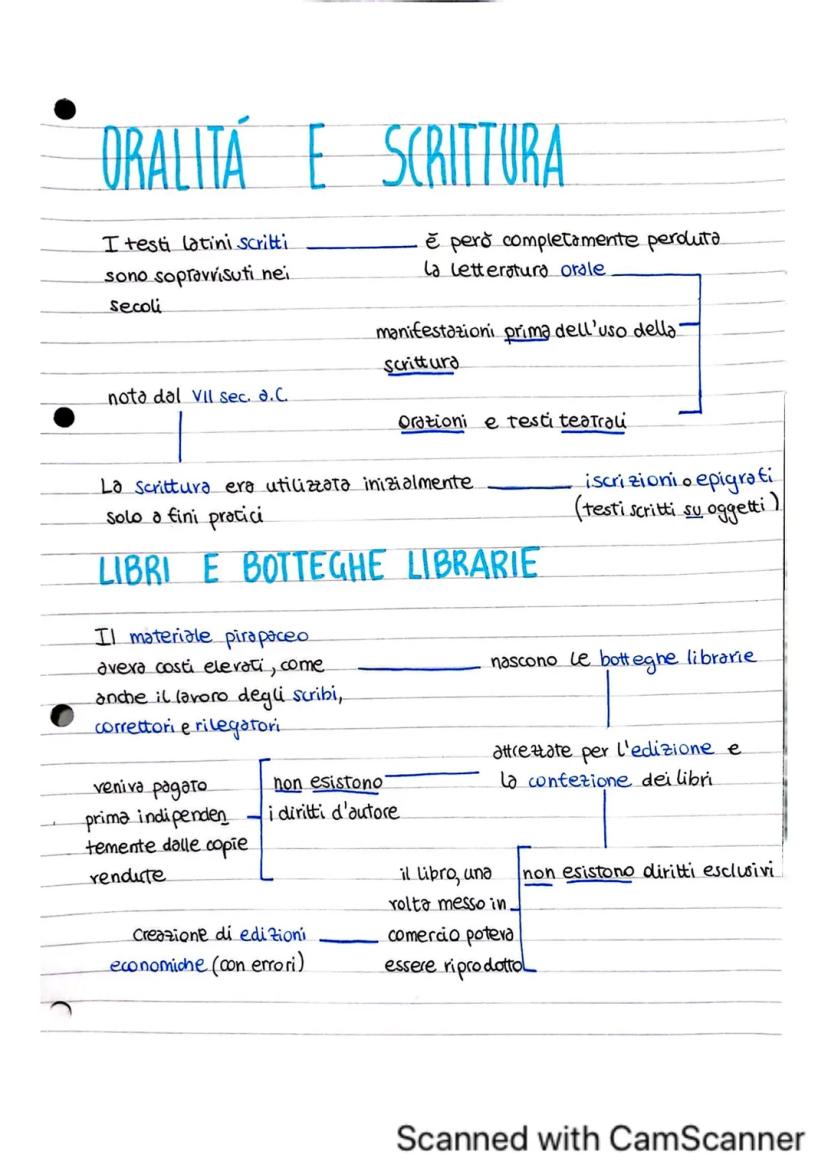 ORALITÁ E SCRITTURA
I testi latini scritti
sono sopravvisuti nei
secoli
è però completamente perduta
la letteratura orale
manifestazioni prima dell'uso della
scrittura
orazioni e testi teatrali
nota dal VII sec. a.C.
La scrittura era utilizzata inizialmente
solo a fini pratici
iscrizioni o epigrafi
(testi scritti su oggetti)
LIBRI E BOTTEGHE LIBRARIE
Il materiale pirapaceo
aveva costi elevati, come
anche il lavoro degli scribi,
correttori e rilegatori
nascono le botteghe librarie
attrezzate per l'edizione e
la confezione dei libri
non esistono
i diritti d'autore
veniva pagato
prima indipenden
temente dalle copie
vendute
non esistono diritti esclusivi
il libro, una
volta messo in
comercio poteva
essere riprodotto
Creazione di edizioni
economiche (con errori)
Scanned with CamScanner